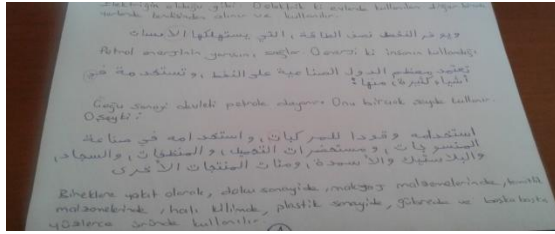 elektriğin olduğu gibi. O elektrik ki evlerde kullanılan diğer
alınır ve kullanılır.
ويوفر النفط نصف الطاقة، التي يستهلكها الأنسان
Petrol enerjinin yarısını sağlar O enerji ki insanın kullandığı.
تعتمد معظم الدول الصناعية على النفط، وتستخدمه في
أشياء كثيرة، منها:
Çoğu sanayi devleti petrole dayanır. Onu birçok şeyde kullanır.
O şeyki:
استخدامه وقودا للمركبات، واستخدامه في صناعة
المنسوجات، ومستحضرات التجميل، والمنظفات، والسجاد،
والبلاستيك والأسمدة، ومئات المنتجات الأخرى
yakıt olarak, doku sanayinde, makyaj malzemelerinde, temizlik
malzemelerinde, halı kilimde, plastik sanayinde, gübrede ve başka başka
yüzlerce üründe kullanılır.